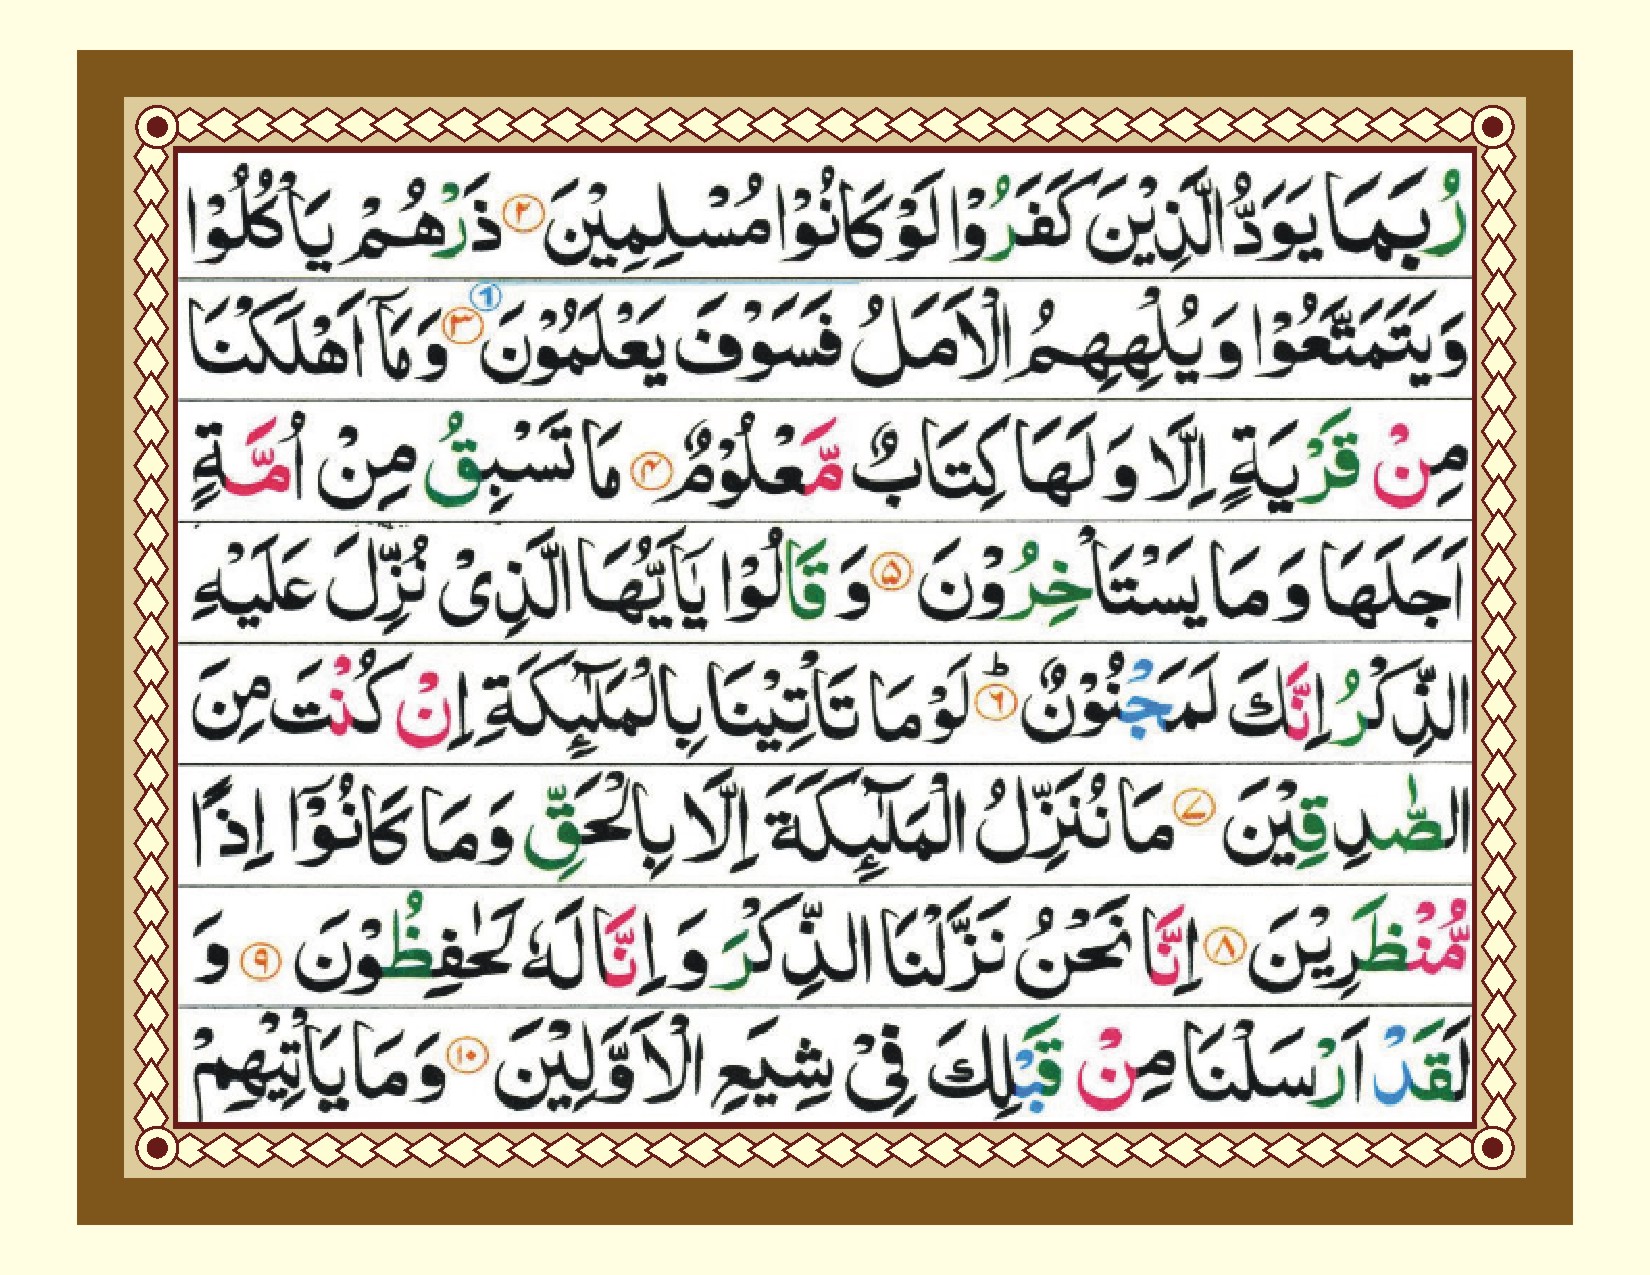 رُبَمَا يَوَدُّ الَّذِيْنَ كَفَرُوْا لَوْ كَانُوْا مُسْلِمِيْنَ ۲ ذَرْهُمْ يَاْكُلُوْا
وَيَتَمَتَّعُوْا وَيُلْهِهِمُ الْاَمَلُ فَسَوْفَ يَعْلَمُوْنَ ۳ وَمَاۤ اَهْلَكْنَا
مِنْ قَرْيَةٍ اِلَّا وَلَهَا كِتَابٌ مَّعْلُوْمٌ ۴ مَا تَسْبِقُ مِنْ اُمَّةٍ
اَجَلَهَا وَمَا يَسْتَاْخِرُوْنَ ۵ وَقَالُوْا يٰۤاَيُّهَا الَّذِىْ نُزِّلَ عَلَيْهِ
الذِّكْرُ اِنَّكَ لَمَجْنُوْنٌ ؕ ۶ لَوْمَا تَاْتِيْنَا بِالْمَلٰٓئِكَةِ اِنْ كُنْتَ مِنَ
الصّٰدِقِيْنَ ۷ مَا نُنَزِّلُ الْمَلٰٓئِكَةَ اِلَّا بِالْحَقِّ وَمَا كَانُوْۤا اِذًا
مُّنْظَرِيْنَ ۸ اِنَّا نَحْنُ نَزَّلْنَا الذِّكْرَ وَاِنَّا لَهٗ لَحٰفِظُوْنَ ۹ وَ
لَقَدْ اَرْسَلْنَا مِنْ قَبْلِكَ فِىْ شِيَعِ الْاَوَّلِيْنَ ۱۰ وَمَا يَاْتِيْهِمْ